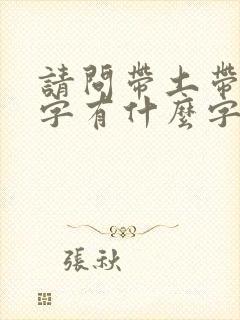 請問帶土帶
字有什麼字
張秋